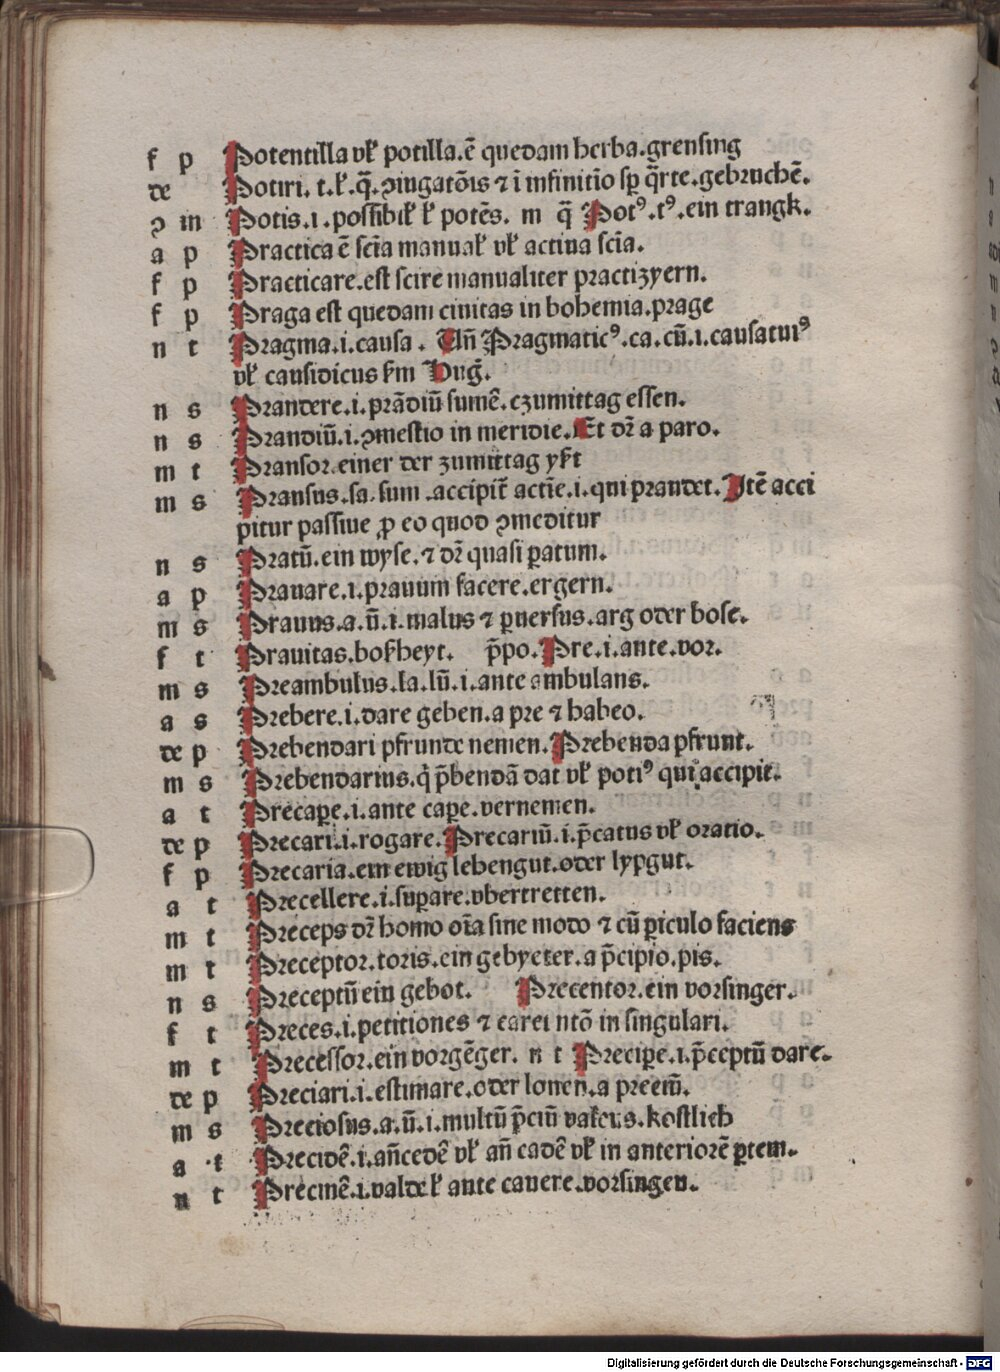 f p Potentilla vƚ potilla.ē quedam herba.grensing
de Potiri.t.ƚ.q̄.ꝯiugatōis ⁊ ī infinitīo sꝑ q̄rte.gebruchē.
ꝯ m Potis.i.possibiƚ ƚ potēs. m q̄ Potꝰ.tꝰ.ein trangk.
a p Practica ē scīa manuaƚ vƚ actiua scīa.
f p Practicare.est scire manualiter practizyern.
f p Praga est quedam ciuitas in bohemia.prage
n t Pragma.i.causa. Uñ Pragmaticꝰ.ca.cū.i.causatiuꝰ
vƚ causidicus ẜm Hug̃.
n s Prandere.i.prādiū sumē.czumittag essen.
n s Prandiū.i.ꝯmestio in meridie.Et dr̄ a paro.
m t Pransor.einer der zumittag yſſt
m s Pransus.sa.sum.accipit̄ actīe.i.qui prandet.Itē acci
pitur passiue ꝓ eo quod ꝯmeditur
n s Pratū.ein wyse.⁊ dr̄ quasi ꝑatum.
a p Prauare.i.prauum facere.ergern.
m s Prauus.a.ū.i.malus ⁊ ꝑuersus.arg oder bose.
f t Prauitas.boſheyt. p̄po.Pre.i.ante.vor.
m s Preambulus.la.lū.i.ante ambulans.
a s Prebere.i.dare geben.a pre ⁊ habeo.
de p Prebendari pfrunde nemen.Prebenda pfrunt.
m s Prebendarius.q̇ p̄bendā dat vƚ potiꝰ qui accipit.
a t Precaꝑe.i.ante caꝑe.vernemen.
de p Precari.i.rogare.Precariū.i.p̄catus vƚ oratio.
f p Precaria.ein ewig lebengut.oder lypgut.
a t Precellere.i.suꝑare.vbertretten.
m t Preceps dr̄ homo oīa sine modo ⁊ cū ꝑiculo faciens
m t Preceptor.toris.ein gebyeter.a p̄cipio.pis.
n s Preceptū ein gebot. Precentor.ein vorsinger.
f t Preces.i.petitiones ⁊ caret ntō in singulari.
m t Precessor.ein vorgēger. n t Preciꝑe.i.p̄ceptū dare.
de p Preciari.i.estimare.oder lonen.a preciū.
m s Preciosus.a.ū.i.multū p̄ciū valens.kostlich
a t Precidē.i.añcedē vƚ añ cadē vƚ in anteriorē ꝑtem.
n t Precinē.i.valde ƚ ante canere.vorsingen.
Digitalisierung gefördert durch die Deutsche Forschungsgemeinschaft - DFG